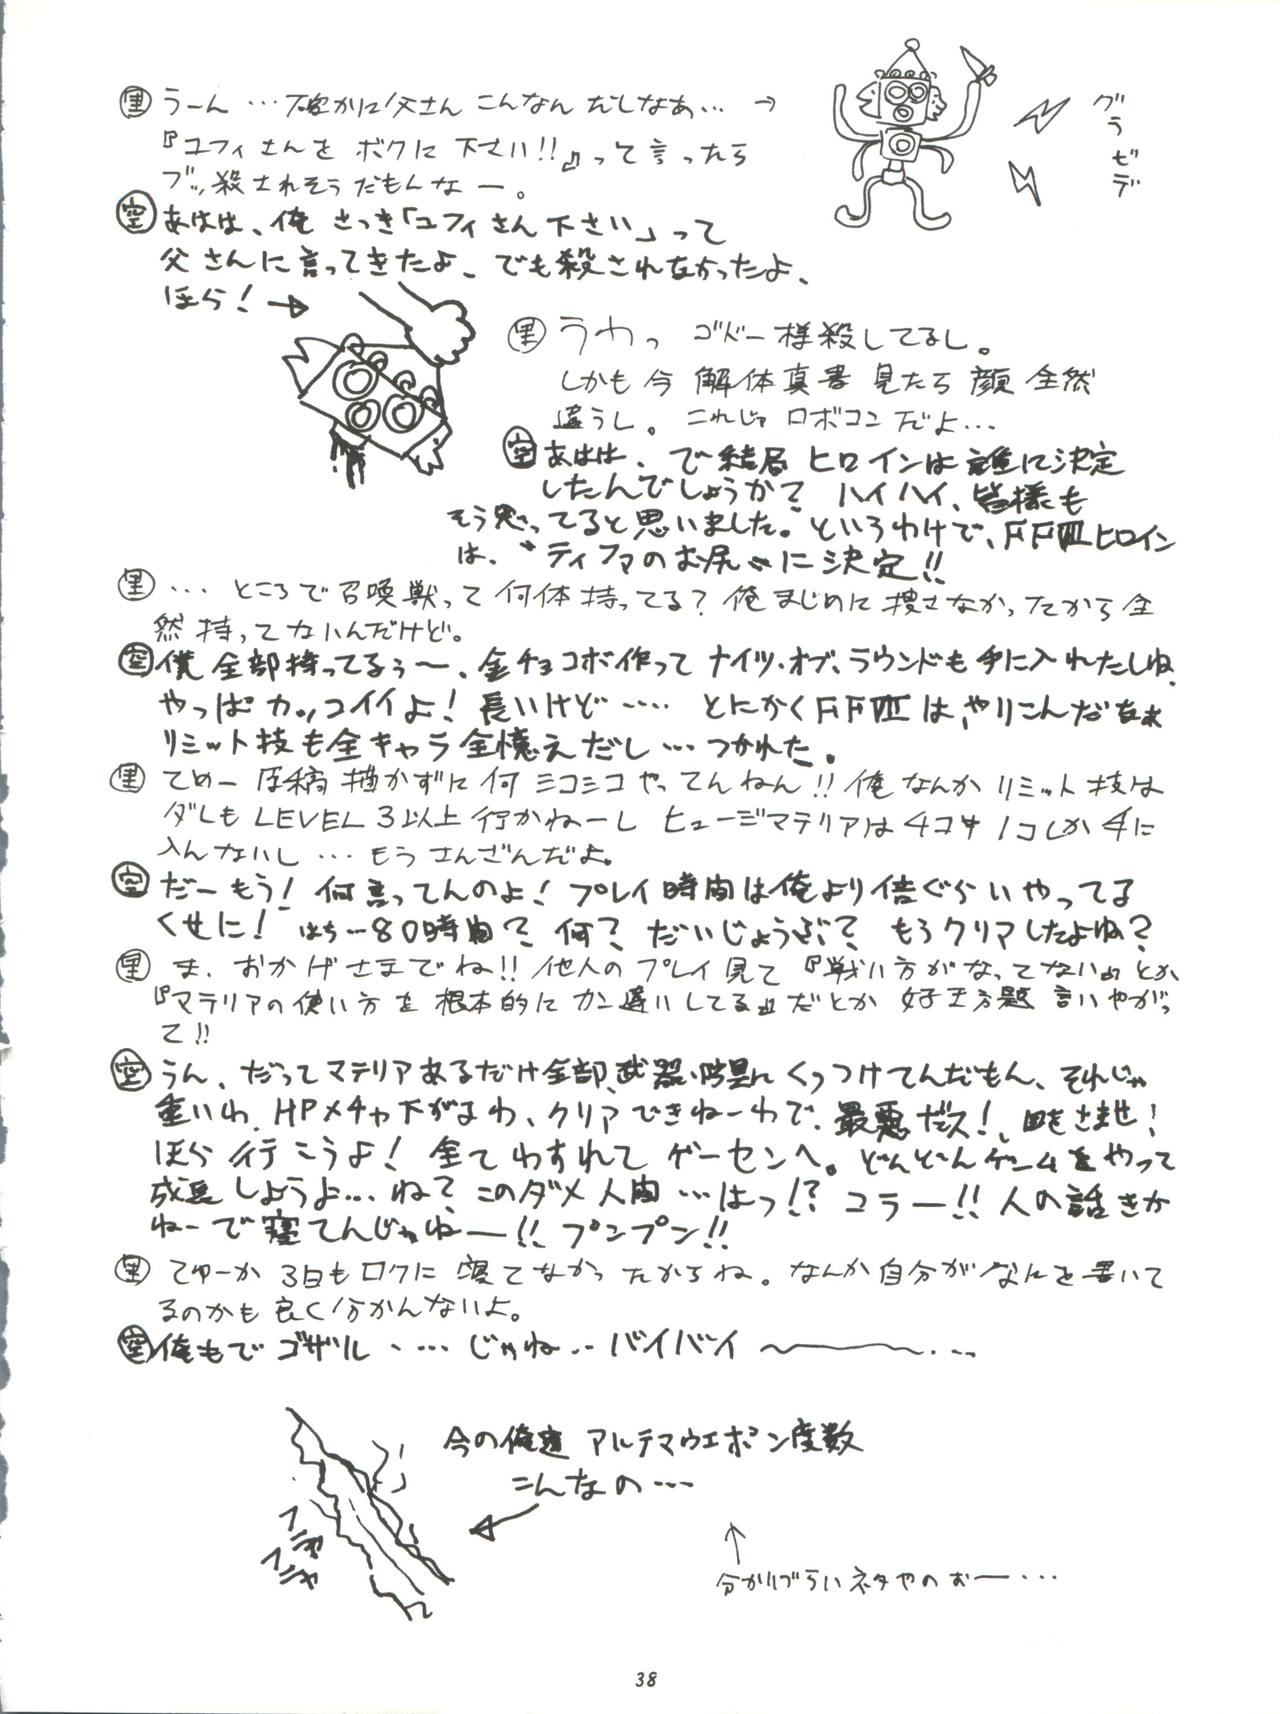 里 うーん…確かに父さん こんなんだしなあ… →
『ユフィさんを ボクに 下さい!!』って言ったら
ブッ殺されそうだもんなー。
グラビデ
空 あはは、俺 さっき「ユフィさん下さい」って
父さんに言ってきたよ、でも殺されなかったよ、
ほら! →
里 うわっ ゴドー様殺してるし。
しかも今 解体真書 見たら 顔 全然
違うし。これじゃ ロボコンだよ…
空 あはは、で結局 ヒロインは 誰に決定
したんでしょうか? ハイハイ、皆様も
そう思ってると思いました。というわけで、FFⅦヒロイン
は、〝ティファのお尻〟に決定!!
里 … ところで召喚獣って 何体持ってる? 俺まじめに捜さなかったから全
然 持ってないんだけど。
空 僕 全部持ってるぅ〜、金チョコボ作って ナイツ・オブ・ラウンドも手に入れたしね、
やっぱカッコイイよ! 長いけど…… とにかくFFⅦは、やりこんだなぁ
リミット技も全キャラ全憶えだし…つかれた。
里 てめー 原稿 描かずに何 シコシコやってんねん!! 俺なんかリミット技は
ダレも LEVEL 3以上行かねーし ヒュージマテリアは4コ中1コしか手に
入んないし … もう さんざんだよ。
空 だーもう! 何言ってんのよ! プレイ時間は俺より倍ぐらいやってる
くせに! はち…80時間? 何? だいじょうぶ? もうクリアしたよね?
里 ま、おかげさまでね!! 他人のプレイ見て『戦い方がなってない』とか
『マテリアの使い方を根本的にカン違いしてる』だとか 好き方題 言いやがっ
て!!
空 うん、だってマテリアあるだけ全部、武器・防具にくっつけてんだもん、それじゃ
重いわ、HPメチャ下がるわ、クリアできねーわで、最悪だス! 、目をさませ!
ほら行こうよ! 全てわすれて ゲーセンへ。どんどんゲームをやって
成長しようよ… ね? このダメ人間 …はっ!? コラー!! 人の話きか
ねーで寝てんじゃねー!! プンプン!!
里 てゆーか 3日もロクに 寝てなかったからね。なんか自分がなにを書いて
るのかも良く分かんないよ。
空 俺もでゴザル ・… じゃね‥バイバイ 〜―――‥‥
今の俺達 アルテマウエポン度数
こんなの…
フニャ
フニャ
↑
分かりづらいネタやのぉー…
38